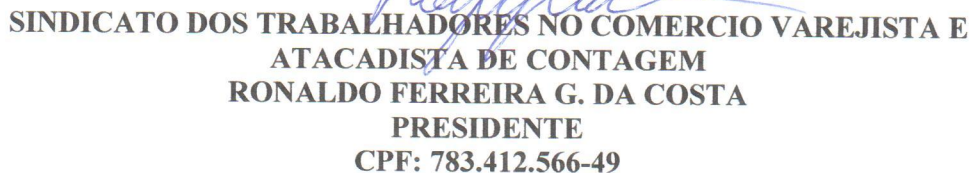 SINDICATO DOS TRABALHADORES NO COMERCIO VAREJISTA E
ATACADISTA DE CONTAGEM
RONALDO FERREIRA G. DA COSTA
PRESIDENTE
CPF: 783.412.566-49